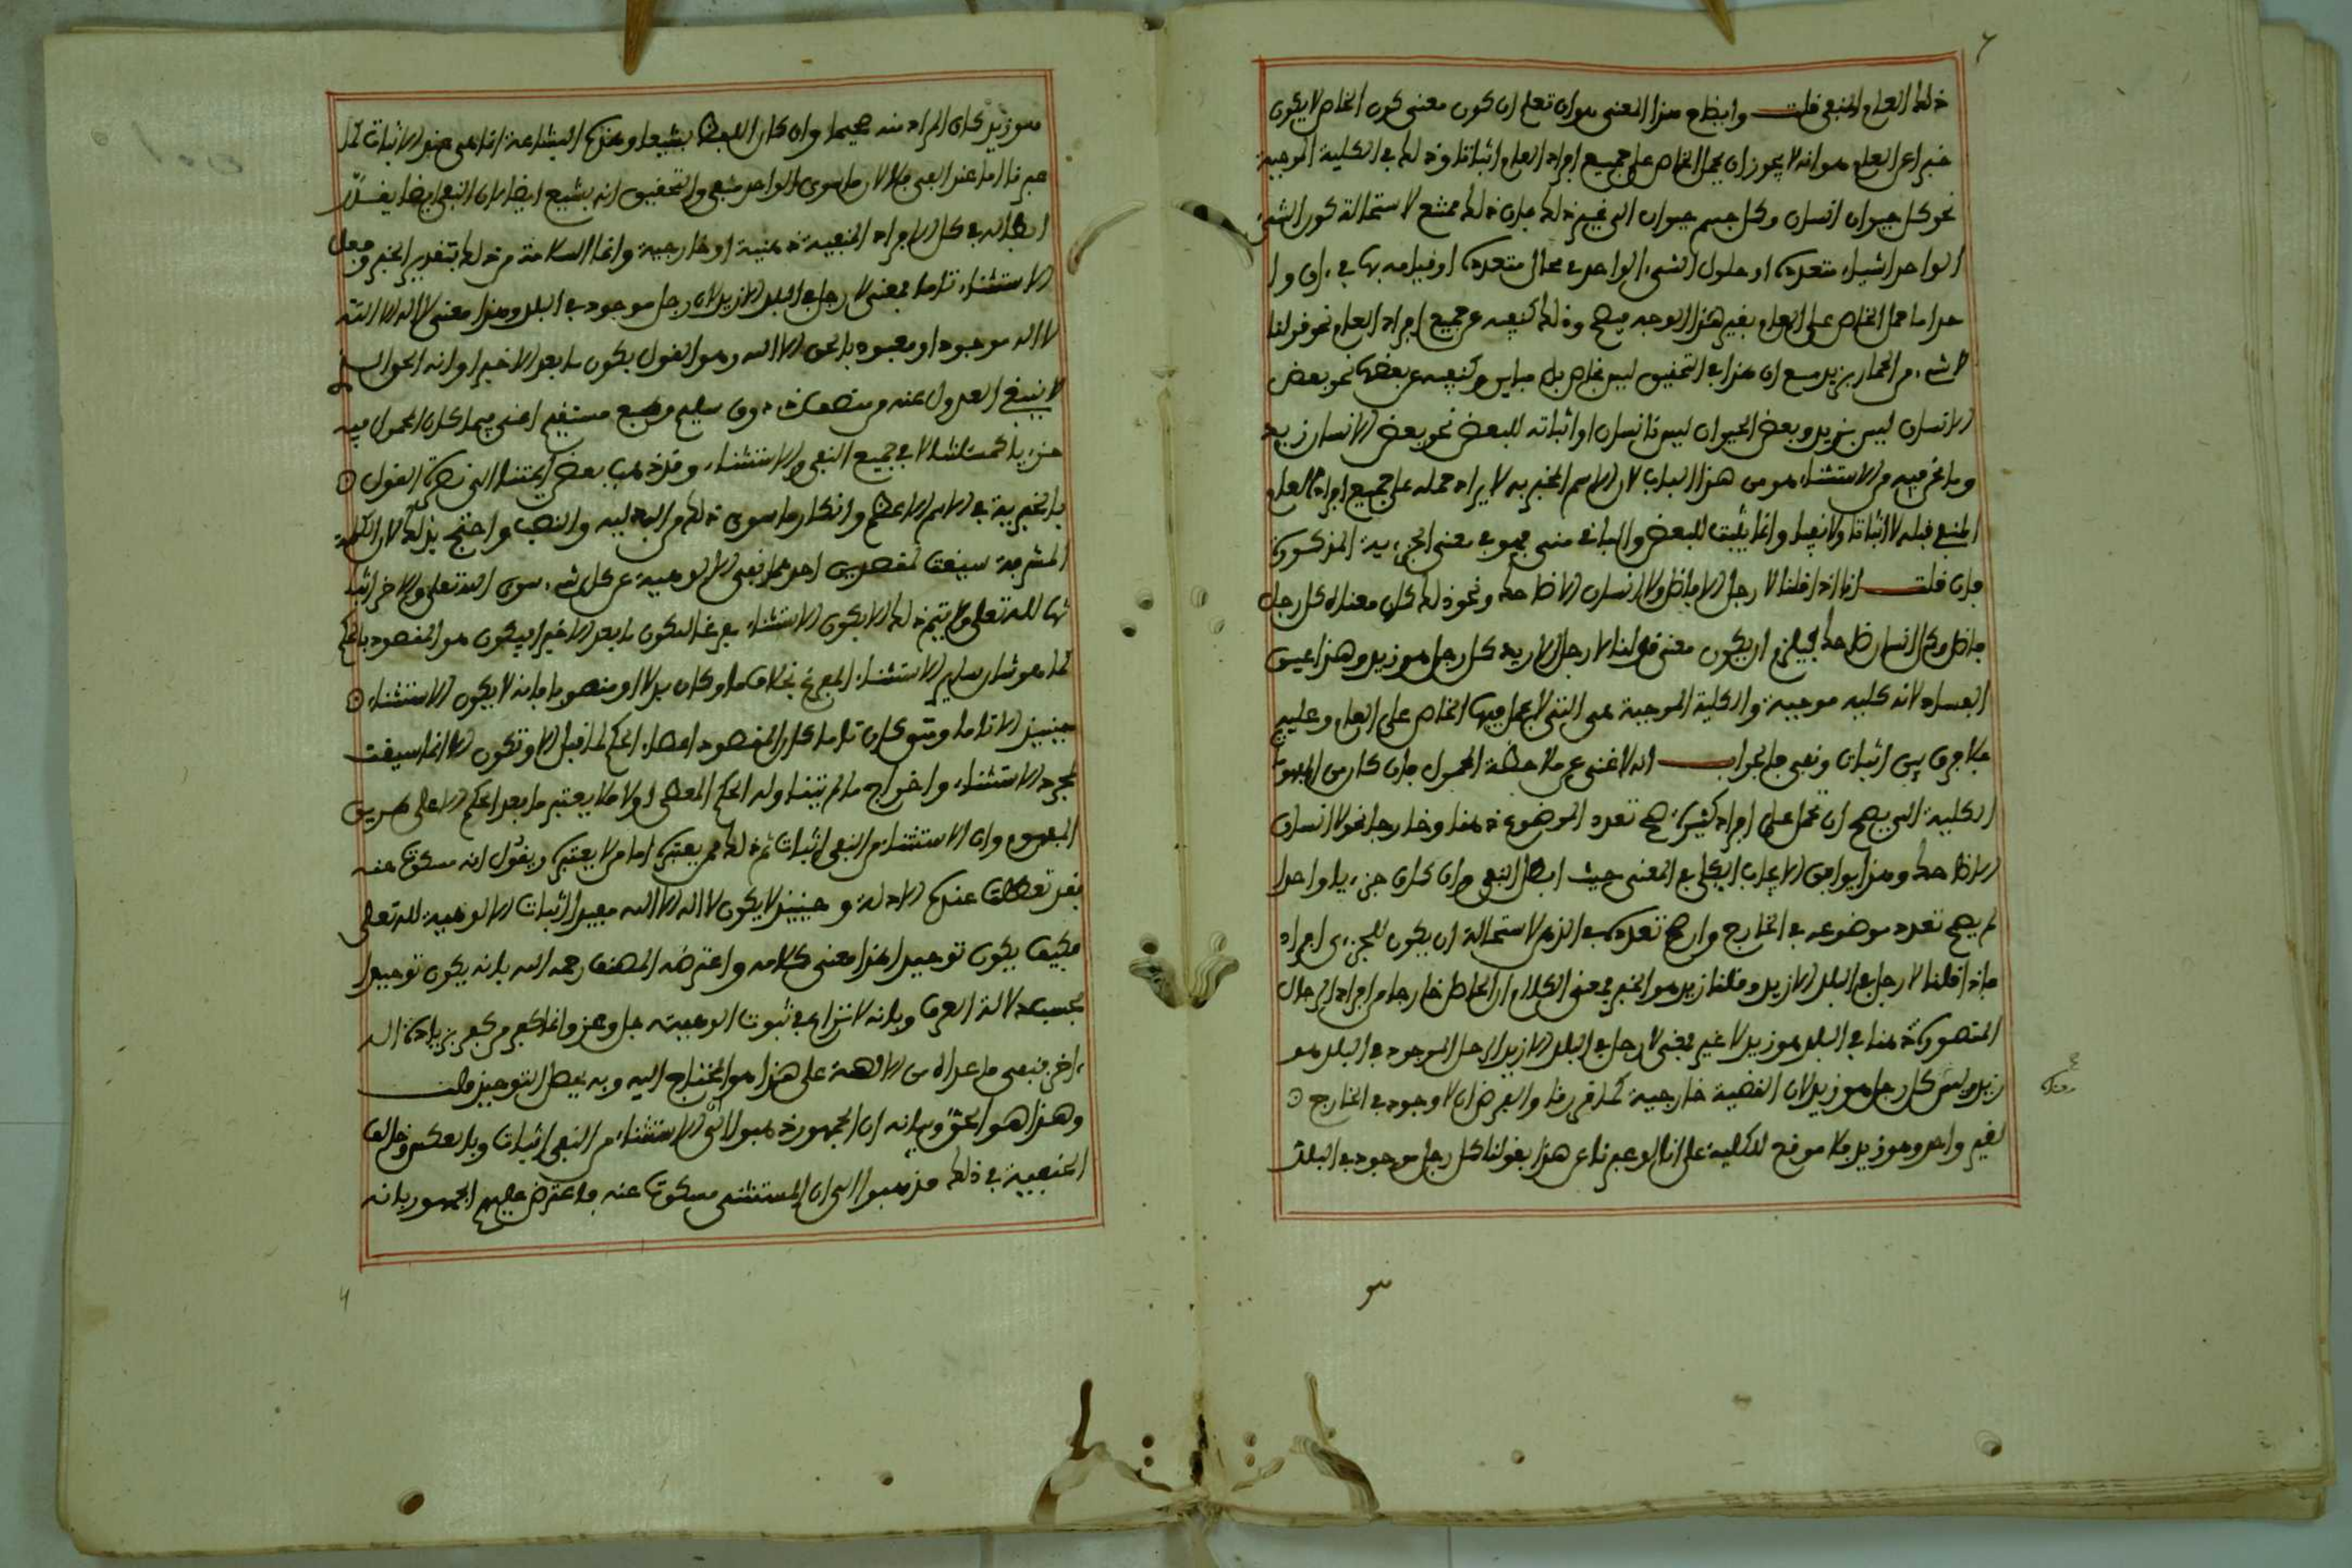 ذلك العام المنفي قلت وايضاح هذا المعنى هو ان تعلم ان كون معنى كون الخاص لا يكون
خبرا عن العام هو انه لا يجوز ان يحمل الخاص على جميع افراد العام اثباتا وذلك في الكلية الموجبة
نحو كل حيوان انسان وكل جسم حيوان الى غير ذلك فان ذلك ممتنع لاستحالة كون الشيء
الواحد اشياء متعددة او حلول الشيء الواحد في محال متعددة او قيامه بها في ءان وا
حد اما حمل الخاص على العام بغير هذا الوجه فيصح وذلك كنفيه عن جميع افراد العام نحو قولنا
لا شيء من الحمار بزيد مع ان هذا في التحقيق ليس بخاص بل مباين وكنفيه عن بعضها نحو بعض
الانسان ليس بزيد وبعض الحيوان ليس بانسان او اثباته للبعض نحو بعض الانسان زيد
وما نحن فيه من الاستثناء هو من هذا الباب لان الاسم المخبر به لا يراد حمله على جميع افراد العام
المنفي قبله لا اثباتا ولا نفيا وانما يثبت للبعض والباقي منفي فهو في معنى الجزءية المذكورة
فان قلت انا اذا قلنا لا رجل الا فاضل ولا انسان الا ضاحك ونحو ذلك كان معناه كل رجل
فاضل وكل انسان ضاحك فيلزم ان يكون معنى قولنا لا رجل الا زيد كل رجل هو زيد وهذا عين
الفساد لانه كلية موجبة والكلية الموجبة هي التي لا يحمل فيها الخاص على العام وعليه
فلا فرق بين اثبات ونفي فالجواب انه لا غنى عن ملاحظة المحمول فان كان من
الكلية التي يصح ان تحمل على افراد كثيرة صح تعدد الموضوع ذهنا وخارجا نحو لا انسان
الا ضاحك وهذا يوافق الايجاب الكلي في المعنى حيث ابطل النفي وان كان جزءيا واحدا
لم يصح تعدد موضوعه في الخارج وان صح تعدده في الذهن لاستحالة ان يكون للجزءي افراد
فاذا قلنا لا رجل في البلد الا زيد وقلنا زيد هو الخبر فمعنى الكلام ان الحاصل خارجا من افراد الرجال
المتصورة ذهنا في البلد هو زيد لا غير فمعنى لا رجل في البلد الا زيد الرجل الموجود في البلد هو
زيد وليس كل رجل هو زيد لان القضية خارجية كما قررنا والفرض ان لا وجود في الخارج
لغير واحد وهو زيد فلا موقع للكلية على انا لو عبرنا عن هذا بقولنا كل رجل موجود في البلد
هو زيد كان المراد منه صحيحا وان كان اللفظ بشيعا وهذه البشاعة انما هي عند الاثبات كما
عبرنا اما عند النفي فلا لان ما سوى الواحد منفي والتحقيق انه بشيع ايضا لان النفي ايضا
ابطاله في كل الافراد المنفية ذهنية او خارجية وانما السلامة من ذلك بتقدير الخبر وجعل
الاستثناء تاما فمعنى لا رجل في البلد الا زيد لان رجل موجود في البلد وهذا معنى لا اله الا الله
لا اله موجود او معبود بالحق الا الله وهو القول بكون ما بعد الا خبرا وانه الحق الذي
لا ينبغي العدول عنه من ذوق سليم وطبع مستقيم اعني فيما كان المحمول فيه
جزءيا كمسئلتنا لا في جميع النفي والاستثناء وقد ذهب بعض ايمتنا الى نصرة القول
بالخبرية في الاسم الاعظم وانكار ما سوى ذلك من البدلية والنصب واحتج بذلك لان الكلمة
المشرفة سيقت لمقصدين احدهما نفي الالوهية عن كل شيء سوى الله تعلى والاخر اثبا
تها لله تعلى ولا يتم ذلك الا بكون الاستثناء مفرغا ليكون ما بعد الا خبرا فيكون هو المقصود بالحكم
كما هو شان ساير الاستثناء المفرغ بخلاف ما لو كان بدلا او منصوبا فانه لا يكون الاستثناء
حينئذ الا تاما ومتى كان تاما كان المقصود اعطاء الحكم لما قبل الا وتكون الا انما سيقت
لمجرد الاستثناء واخراج ما لم يتناوله الحكم المعطى اولا فلا يعتبر ما بعد الحكم الا على طريق
المفهوم وان الاستثناء من النفي اثبات ثم ذلك ممن يعتبره اما من لا يعتبره ويقول انه مسكوت عنه
فقد تعطلت عنده الادلة وحينئذ لا يكون لا اله الا الله مفيدا اثبات الالوهية لله تعلى
فكيف يكون توحيدا هذا معنى كلامه واعترضه المصنف رحمه الله بانه يكون توحيدا
بحسب دلالة العرف وبانه لا نزاع في ثبوت الوهيته جل وعز وانما كفر من كفر بزيادة اله
ءاخر فنفي ما عداه من الالهة على هذا هو المحتاج اليه وبه يحصل التوحيد قلت
وهذا هو الحق وبيانه ان الجمهور ذهبوا الى ان الاستثناء من النفي اثبات وبالعكس وخالف
الحنفية في ذلك فذهبوا الى ان المستثنى مسكوت عنه فاعترض عليهم الجمهور بانه